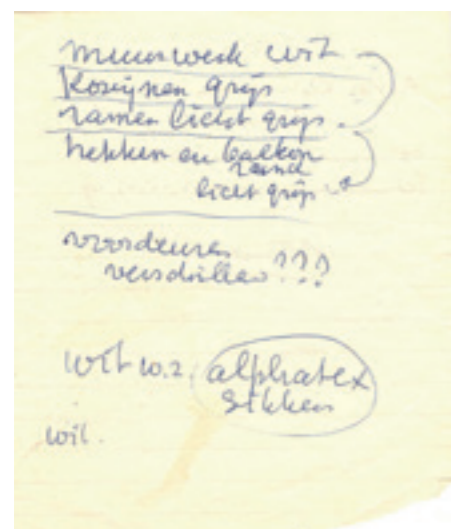 muurwerk wit
Kozijnen grijs
ramen licht grijs.
hekken en balkon
rand
licht grijs
voordeuren
verschillen ???
wit w.z. alphatex
Sikkens
wit.